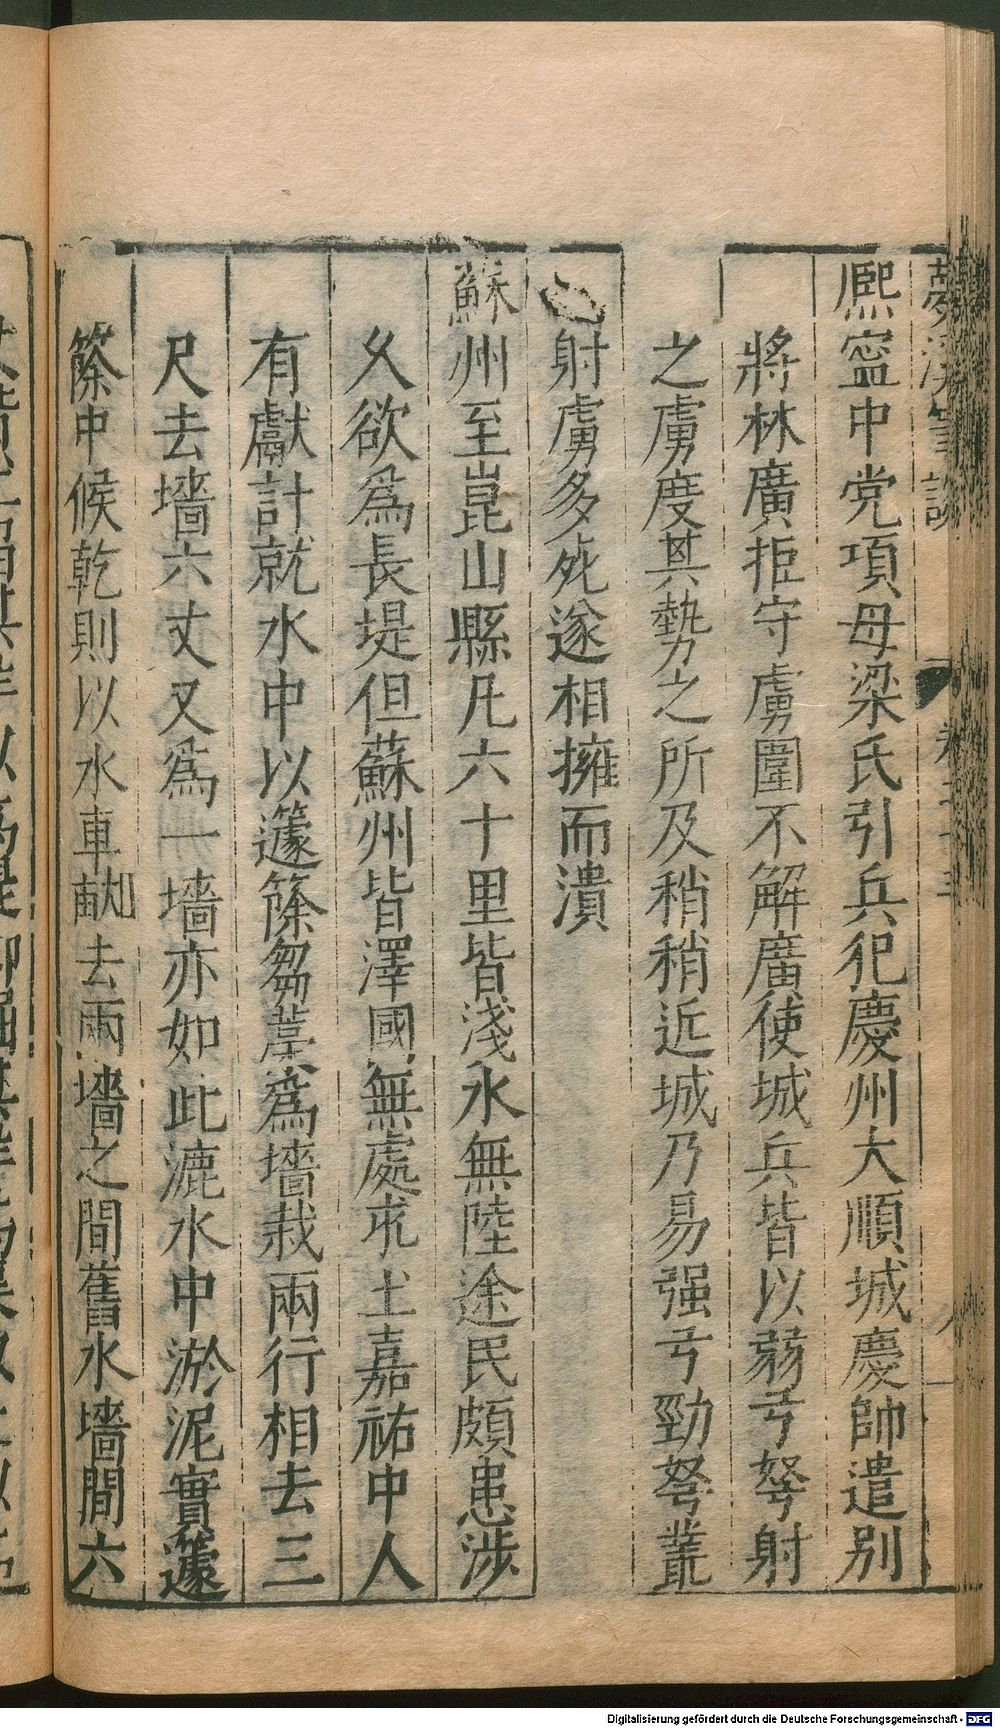 夢溪筆談
熙寧中党項母梁氏引兵犯慶州大順城慶帥遣别
將林廣拒守虜圍不解廣使城兵皆以弱弓弩射
之虜度其勢之所及稍稍近城乃易强弓勁弩叢
射虜多死遂相擁而潰
蘇州至崑山縣凡六十里皆淺水無陸途民頗患涉
久欲爲長堤但蘇州皆澤國無處求土嘉祐中人
有獻計就水中以蘧篨芻藁爲墻栽兩行相去三
尺去墻六丈又爲一墻亦如此漉水中淤泥實蘧
篨中候乾則以水車畎去兩墻之間舊水墻間六
Digitalisierung gefördert durch die Deutsche Forschungsgemeinschaft - DFG